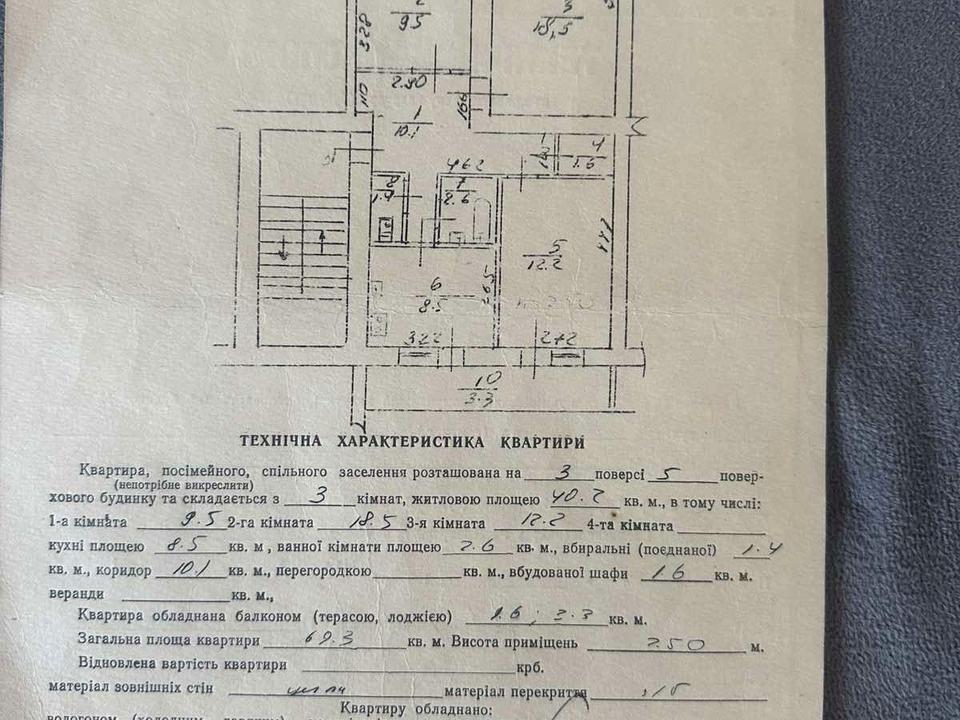 2
9.5
3
18,5
328
2.90
110
166
1
10.1
4
1.6
462
8
1.4
7
2.6
5
12.2
6
8.5
265
322
272
10
3.3
ТЕХНІЧНА ХАРАКТЕРИСТИКА КВАРТИРИ
Квартира, посімейного, спільного заселення розташована на 3 поверсі 5 повер-
(непотрібне викреслити)
хового будинку та складається з 3 кімнат, житловою площею 40.2 кв. м., в тому числі:
1-а кімната 9.5 2-га кімната 18.5 3-я кімната 12.2 4-та кімната
кухні площею 8.5 кв. м, ванної кімнати площею 2.6 кв. м., вбиральні (поєднаної) 1.4
кв. м., коридор 10.1 кв. м., перегородкою кв. м., вбудованої шафи 1.6 кв. м.
веранди кв. м.,
Квартира обладнана балконом (терасою, лоджією) ; 3.3 кв. м.
Загальна площа квартири 69.3 кв. м. Висота приміщень 250 м.
Відновлена вартість квартири крб.
матеріал зовнішніх стін матеріал перекриття
Квартиру обладнано: